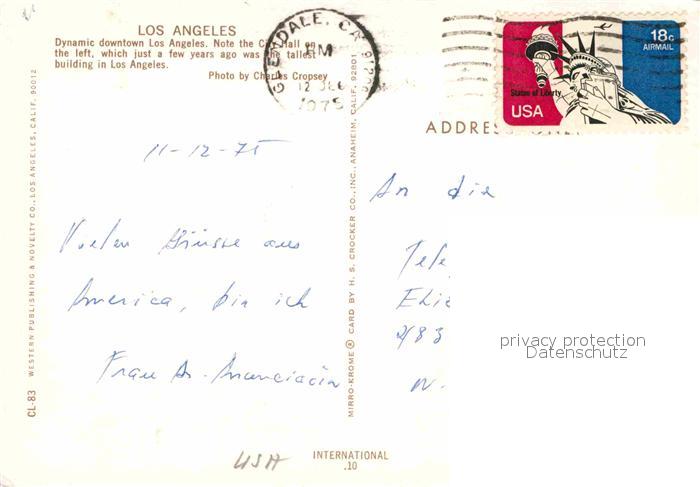 LOS ANGELES
Dynamic downtown Los Angeles. Note the City Hall on
the left, which just a few years ago was the tallest
building in Los Angeles.
Photo by Charles Cropsey
GLENDALE, CA
PM
12 DEC
1975
18c
AIRMAIL
Statue of Liberty
USA
ADDRESS ONLY
11-12-75
Vielen Grüsse aus
America, bin ich
Frau
An die
Tele
Elis
2/83
W.
privacy protection
Datenschutz
USA
INTERNATIONAL
.10
CL-83
WESTERN PUBLISHING & NOVELTY CO., LOS ANGELES, CALIF. 90012
MIRRO-KROME® CARD BY H. S. CROCKER CO., INC., ANAHEIM, CALIF. 92801